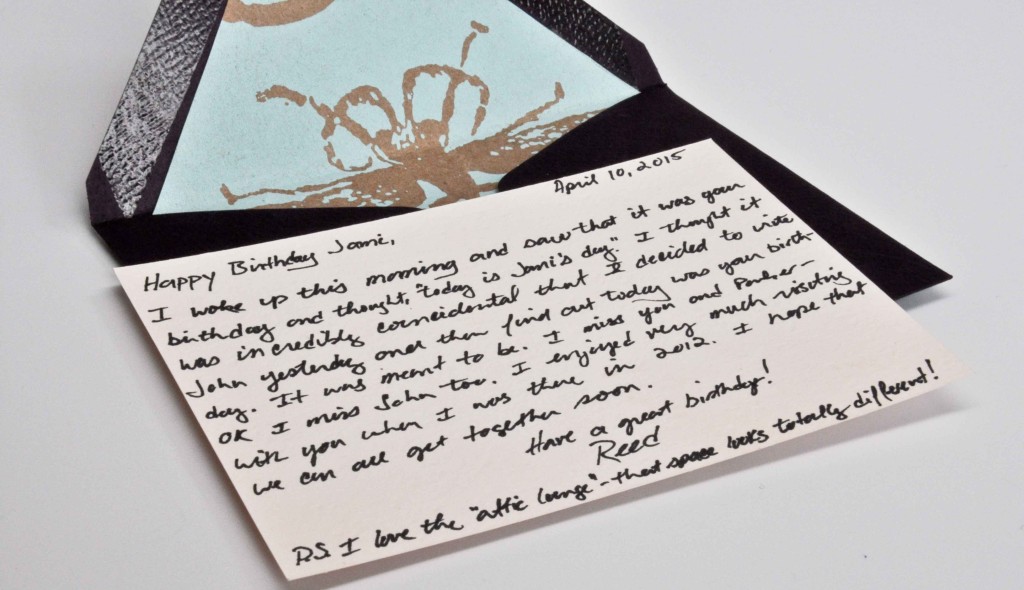 April 10, 2015
Happy Birthday Jami,
I woke up this morning and saw that it was your
birthday and thought, "today is Jami's day." I thought it
was incredibly coincidental that I decided to write
John yesterday and then find out today was your birth-
day. It was meant to be. I miss you and Parker-
OK I miss John too. I enjoyed very much visiting
with you when I was there in 2012. I hope that
we can all get together soon.
Have a great birthday!
Reed
P.S. I love the "attic lounge"-that space looks totally different!